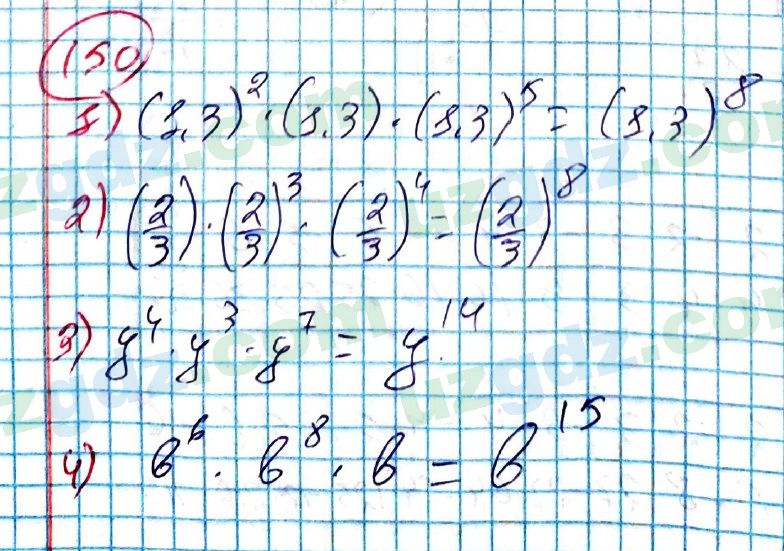 150
1) (1,3)² · (1,3) · (1,3)⁵ = (1,3)⁸
2) (2/3) · (2/3)³ · (2/3)⁴ = (2/3)⁸
3) y⁴ · y³ · y⁷ = y¹⁴
4) b⁶ · b⁸ · b = b¹⁵
uzgdz.com
uzgdz.com
uzgdz.com
uzgdz.com